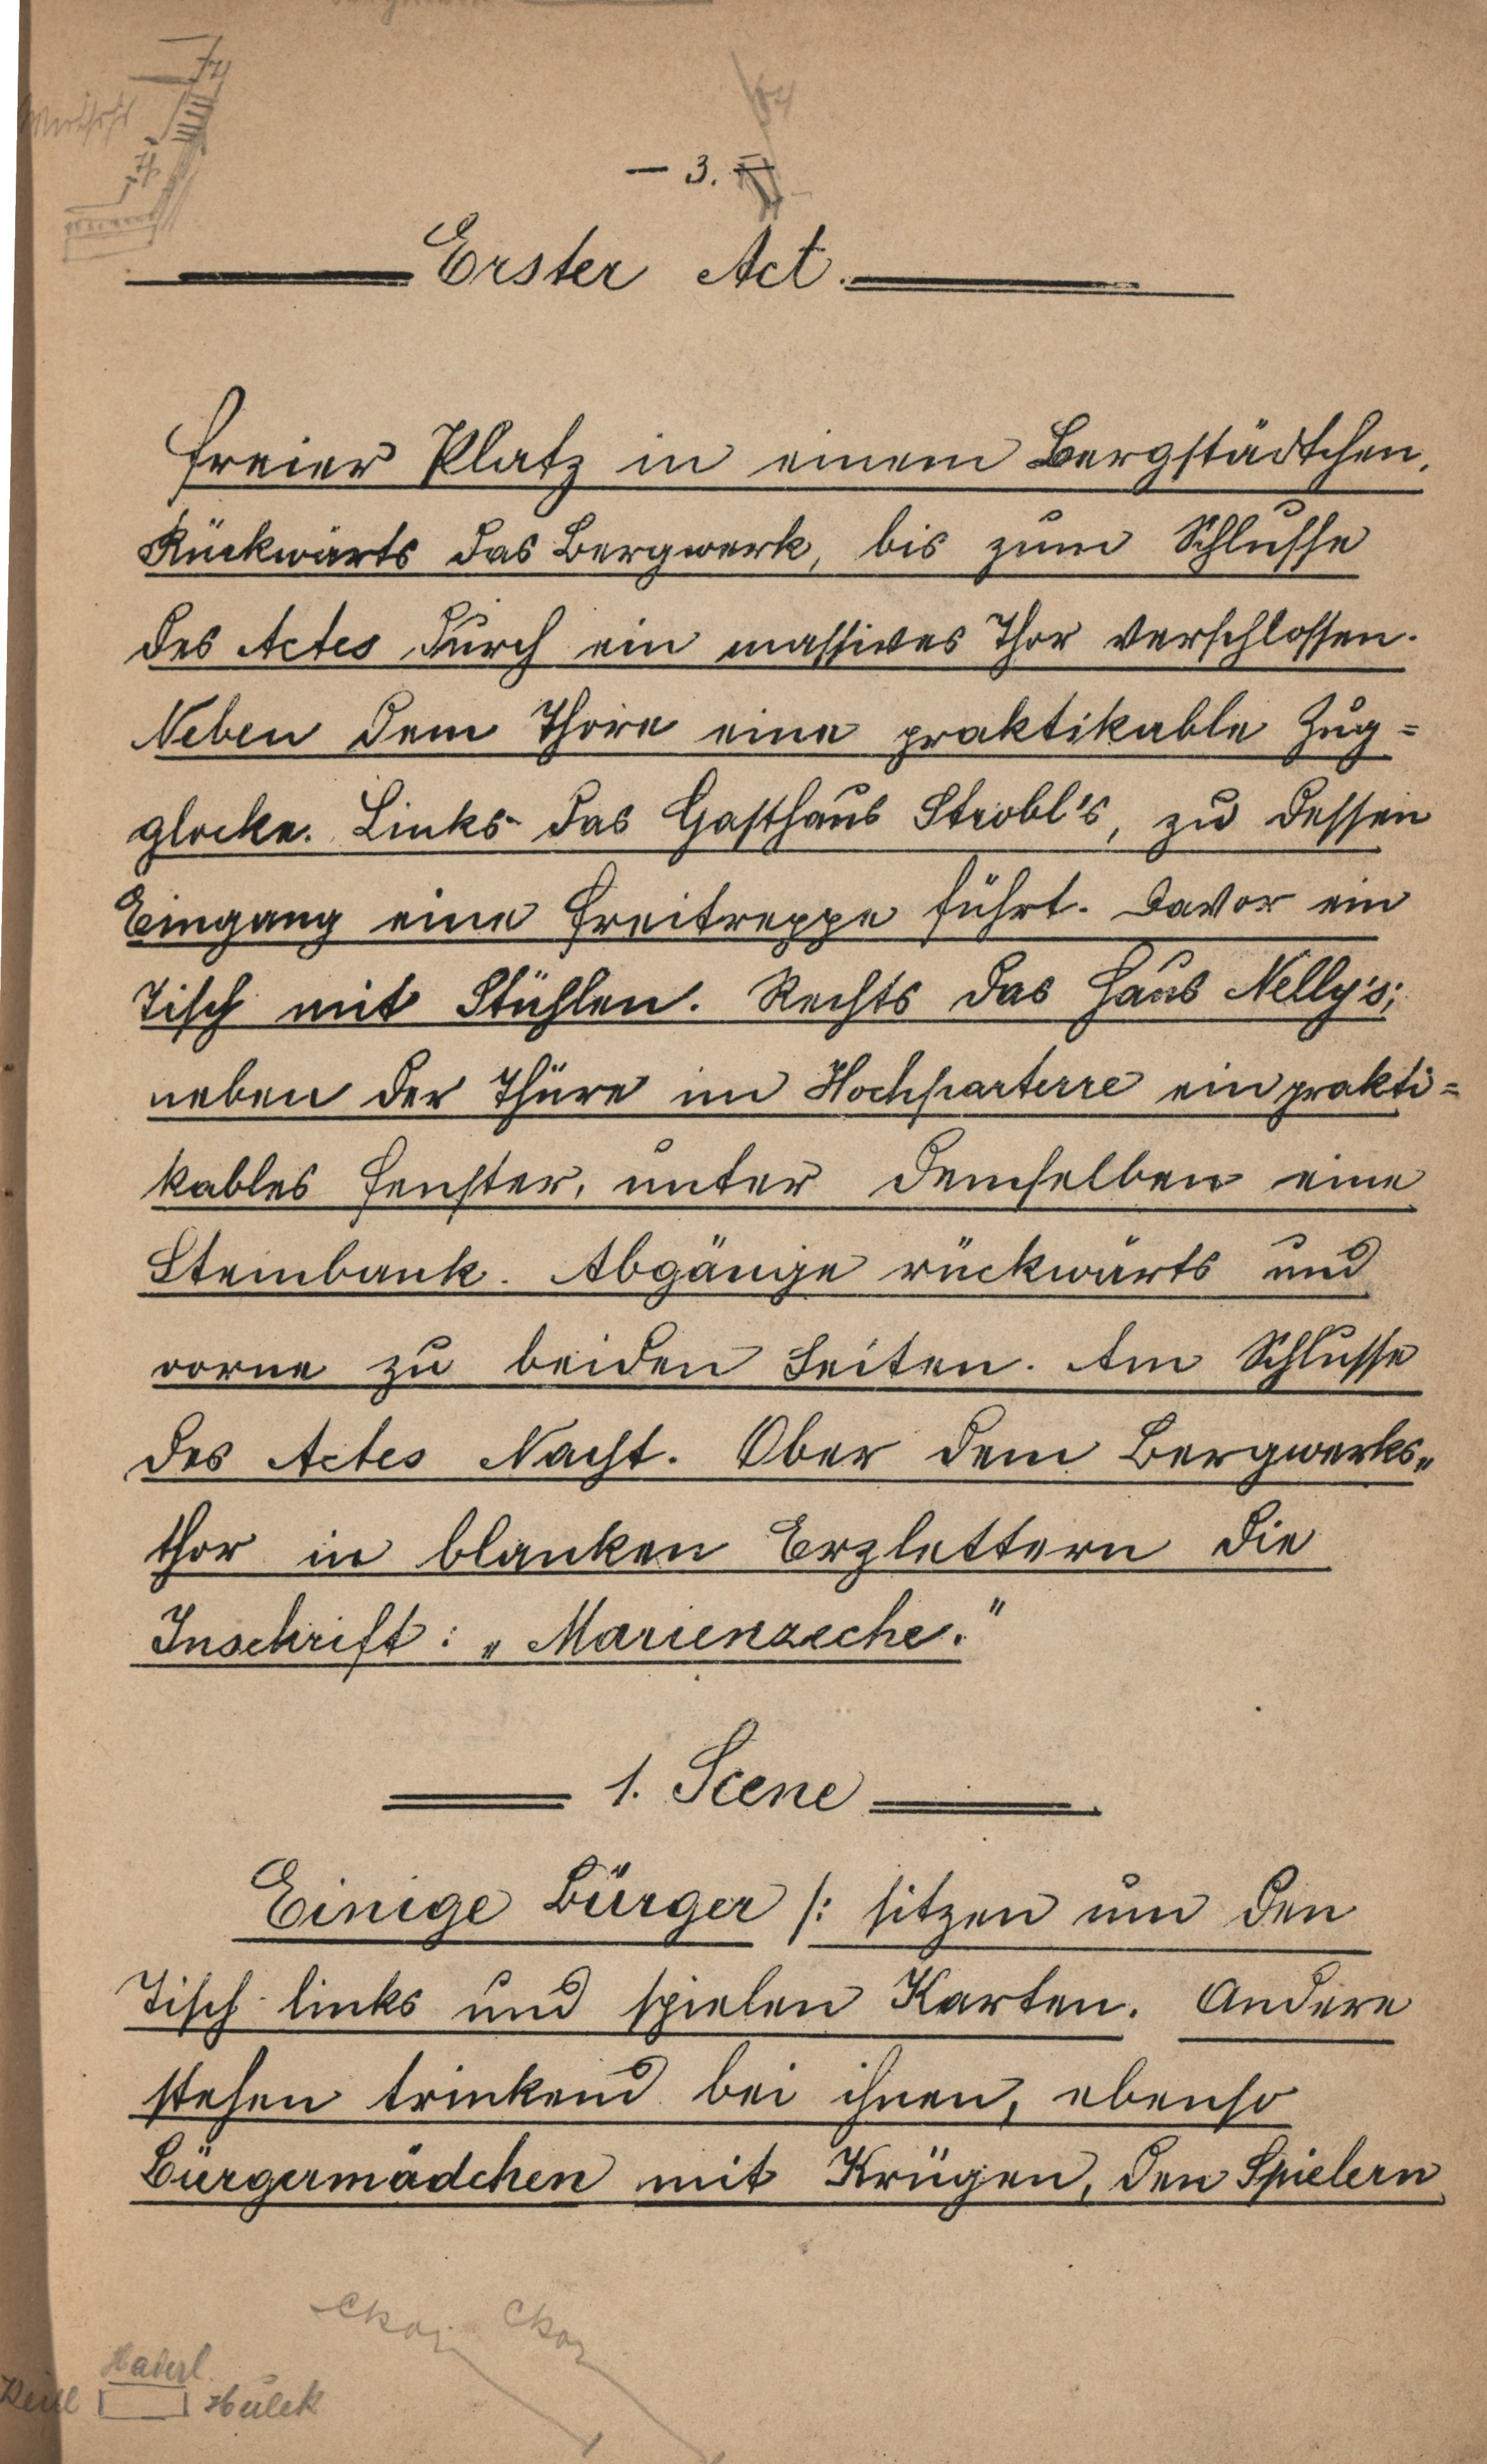 — 3. —
Erster Act.
Freier Platz in einem Bergstädtchen.
Rückwärts das Bergwerk, bis zum Schlusse
des Actes durch ein massives Thor verschlossen.
Neben dem Thore eine praktikable Zug=
glocke. Links das Gasthaus Strobl's, zu dessen
Eingang eine Freitreppe führt. Davor ein
Tisch mit Stühlen. Rechts das Haus Nelly's;
neben der Thüre im Hochparterre ein prakti=
kables Fenster, unter demselben eine
Steinbank. Abgänge rückwärts und
vorne zu beiden Seiten. Am Schlusse
des Actes Nacht. Ober dem Bergwerks„
thor in blanken Erzlettern die
Inschrift: „Marienzeche."
1. Scene
Einige Bürger /: sitzen um den
Tisch links und spielen Karten. Andere
stehen trinkend bei ihnen, ebenso
Bürgermädchen mit Krügen, den Spielern
Haderl